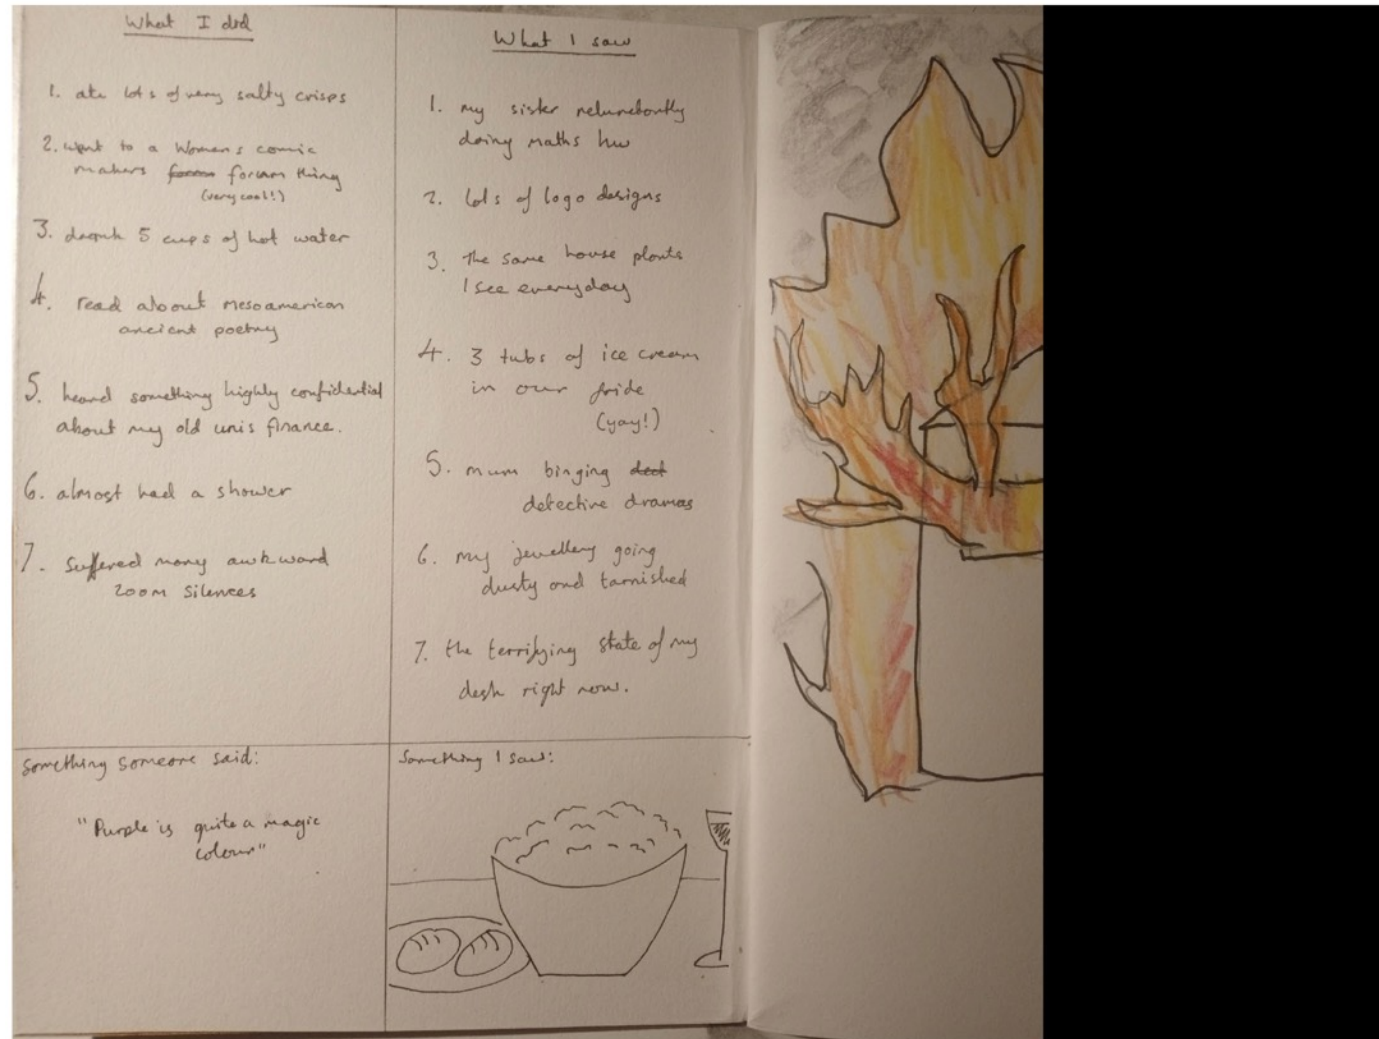 What I did
1. ate lots of very salty crisps
2. went to a Womens comic
makers forum thing
(very cool!)
3. drank 5 cups of hot water
4. read about mesoamerican
ancient poetry
5. heard something highly confidential
about my old unis finance.
6. almost had a shower
7. suffered many awkward
zoom silences
Something someone said:
"Purple is quite a magic
colour"
What I saw
1. my sister relunctantly
doing maths hw
2. lots of logo designs
3. the same house plants
I see everyday
4. 3 tubs of ice cream
in our fride
(yay!)
5. mum binging
detective dramas
6. my jewellery going
dusty and tarnished
7. the terrifying state of my
desk right now.
Something I saw: